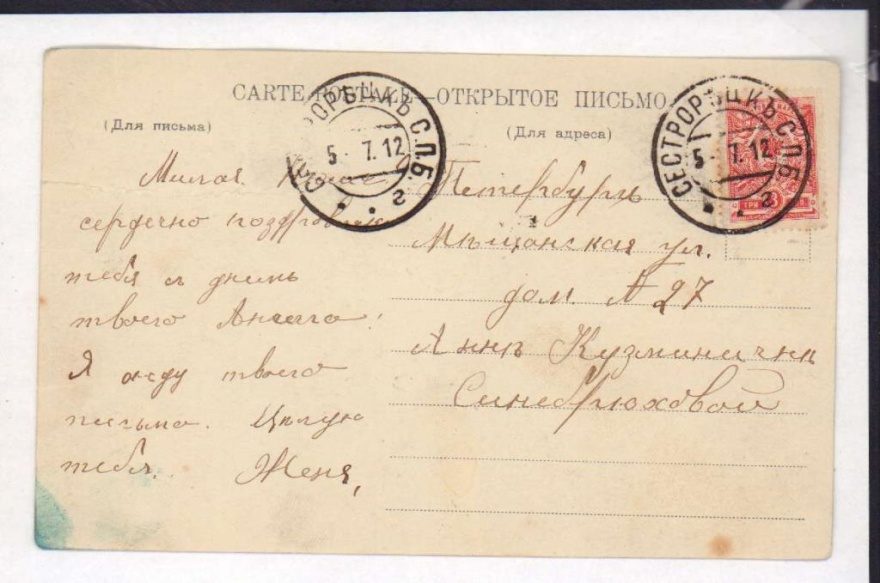 CARTE POSTALE—ОТКРЫТОЕ ПИСЬМО
(Для письма)
(Для адреса)
СЕСТРОРѢЦКЪ С.П.Б.
5 7.12
г
СЕСТРОРѢЦКЪ С.П.Б.
5 7.12
г
ТРИ 3
Милая
сердечно поздравляю
тебя съ днемъ
твоего Ангела.
Я жду твоего
письма. Цѣлую
тебя. Женя,
Петербургъ
Мѣщанская ул.
дом. № 27
Аннѣ Кузминичнѣ
Синебрюховой